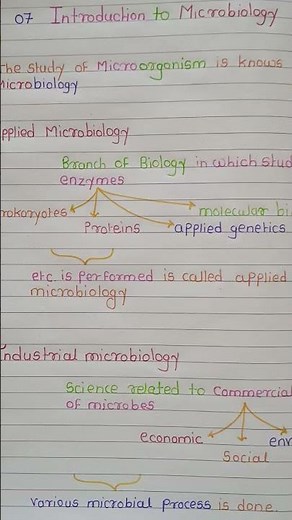 07 Introduction to Microbiology
The study of Microorganism is knows
Microbiology
pplied Microbiology
Branch of Biology in which stud
enzymes
rokoryotes
molecular bi
Proteins
applied genetics
etc is performed is called applied
microbiology
Industrial microbiology
Science releted to commercial
of microbes
economic
env
Social
various microbial process is done.